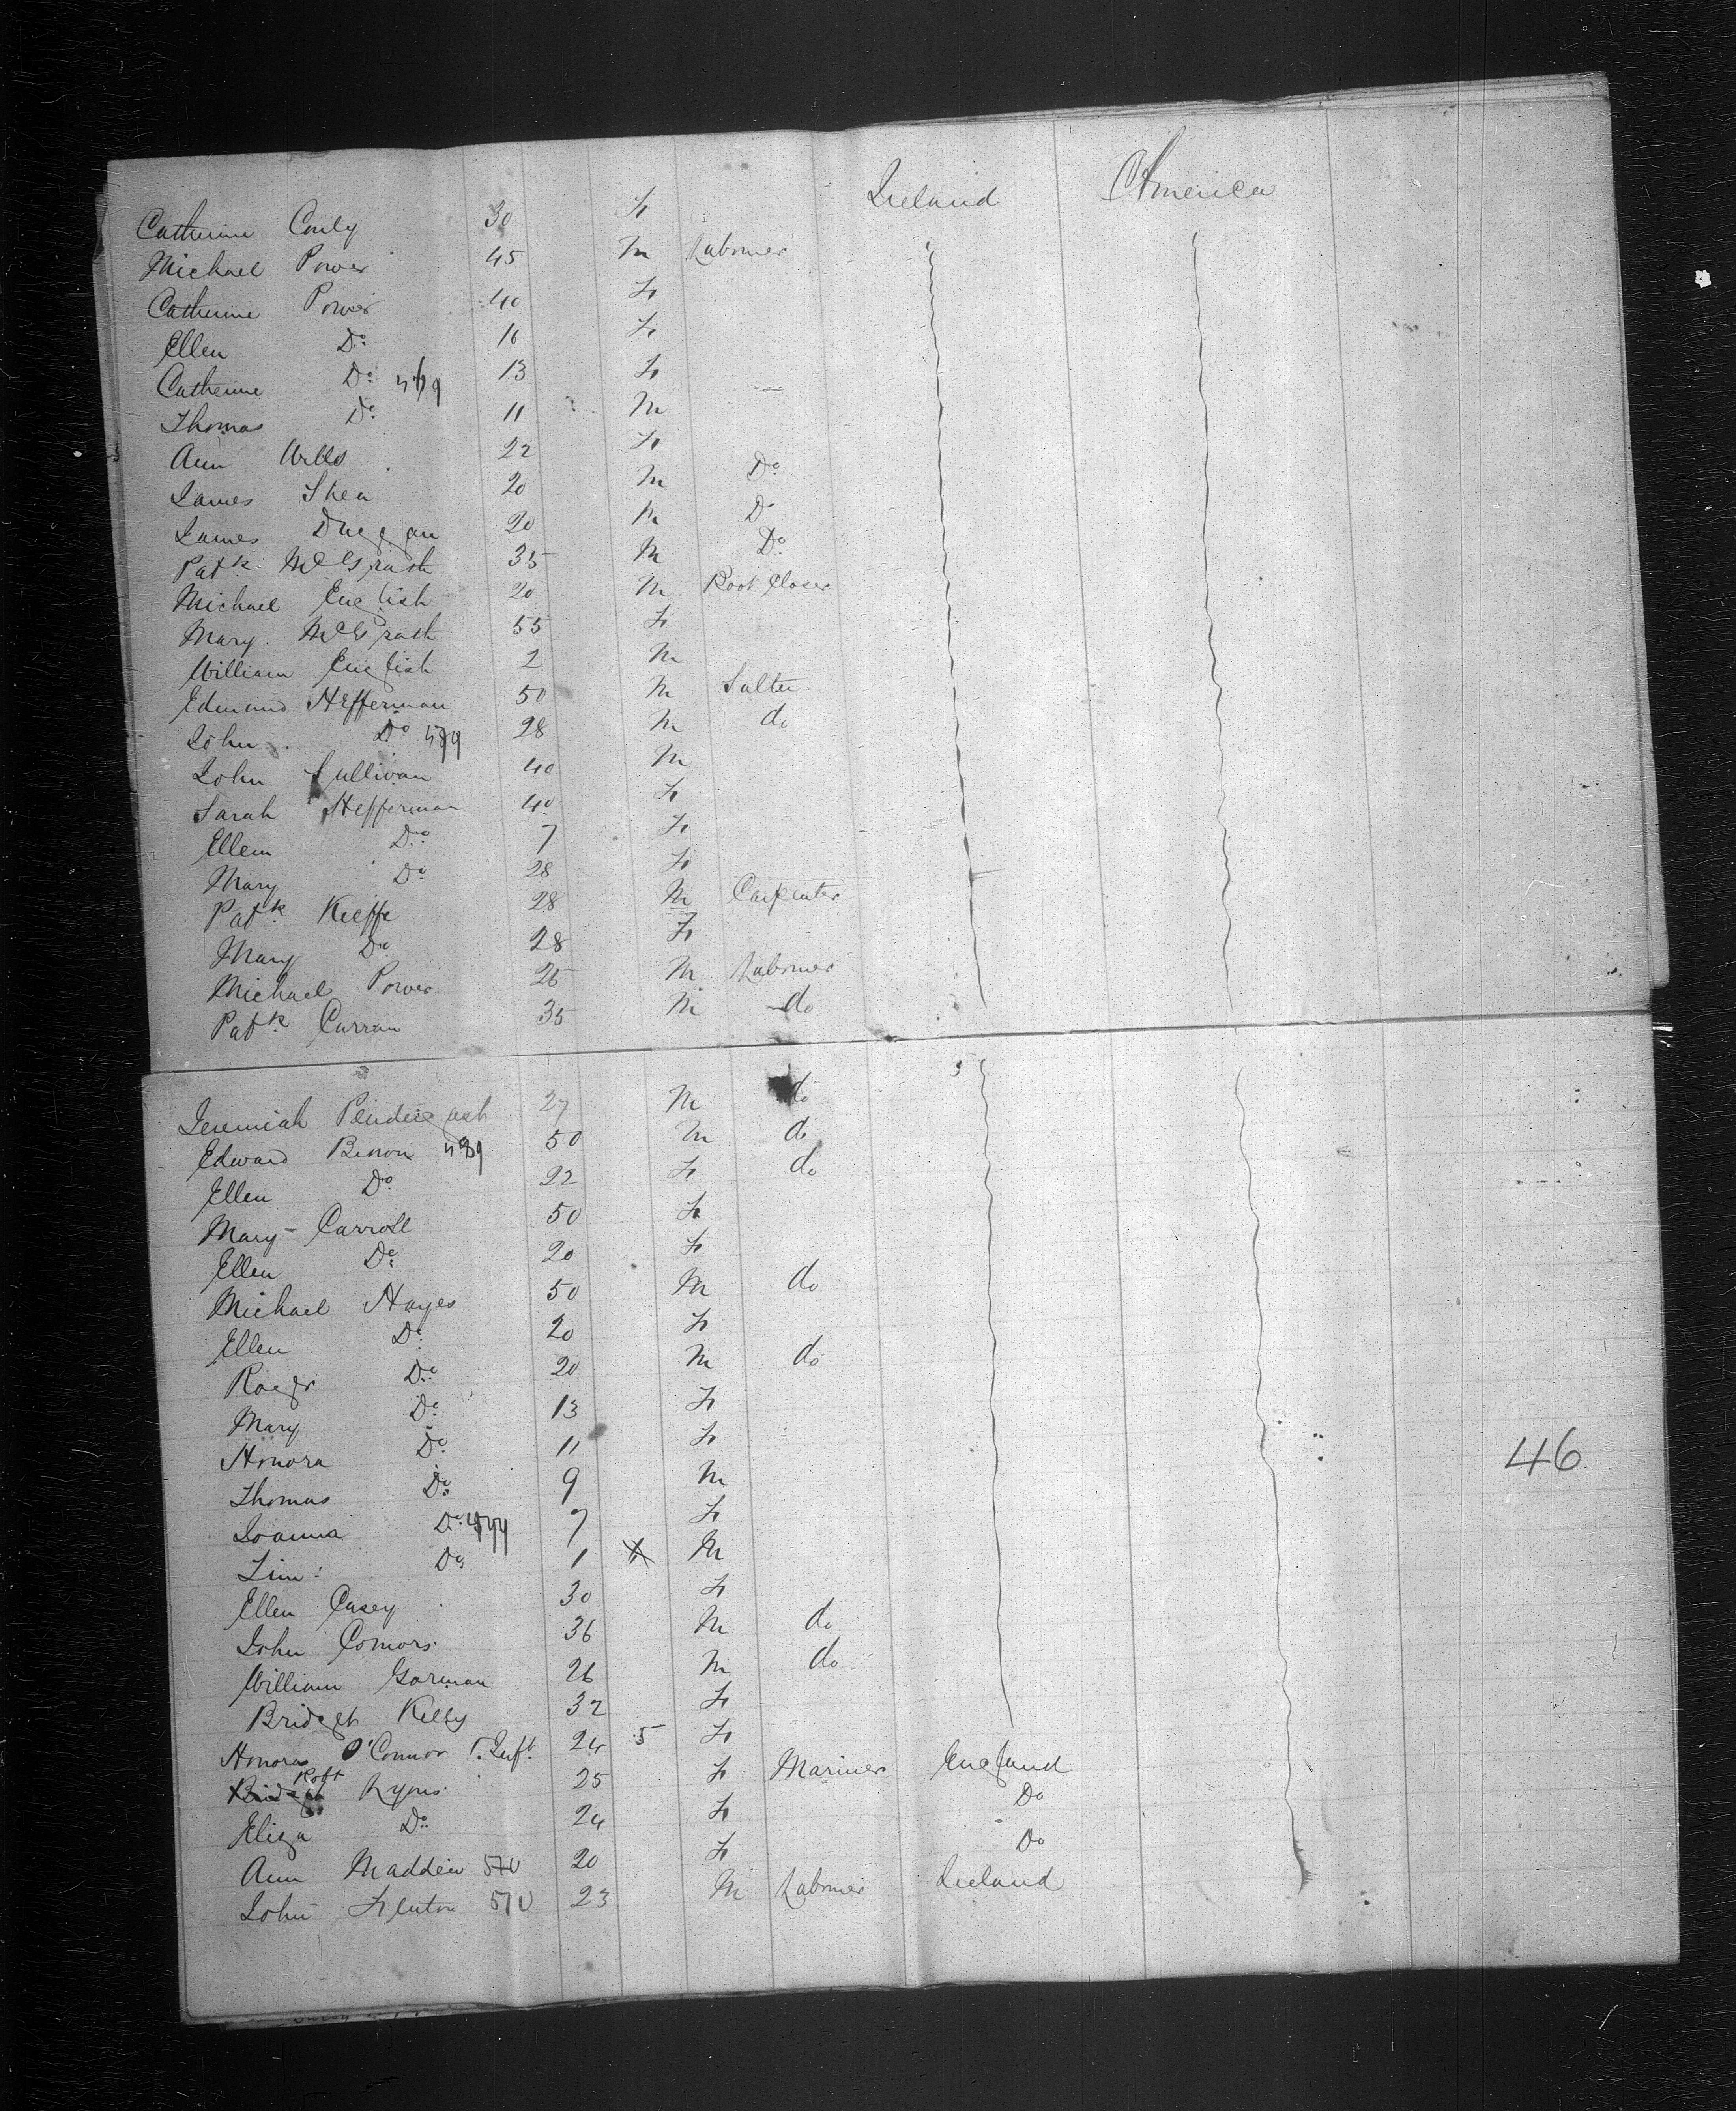 Catherine Conly 30 F Ireland America
Michael Power 45 M Labourer
Catherine Power 40 F
Ellen Do 16 F
Catherine Do 13 F
Thomas Do 11 M
Ann Wells 22 F
James Shea 20 M Do
James Duggan 20 M Do
Patk McGrath 35 M Do
Michael English 20 M Boot Closer
Mary McGrath 55 F
William English 2 M
Edmund Hefferman 50 M
John Do 28 M do
John Sullivan 40 M
Sarah Hefferman 40 F
Ellen Do 7 F
Mary Do 28 F
Patk Kieffe 28 M Carpenter
Mary Do 28 F
Michael Power 26 M Labourer
Patk Curran 35 M do
Jeremiah 27 M do
Edward 50 M do
Ellen Do 22 F do
Mary Carroll 50 F
Ellen Do 20 F
Michael Hayes 50 M do
Ellen Do 20 F
Roger Do 20 M do
Mary Do 13 F
Honora Do 11 F
46
Thomas Do 9 M
Joanna Do 7 F
Tim: Do 1 M
Ellen Casey 30 F
John Connors 36 M do
William Gorman 26 M do
Bridget Kelly 32 F
Honora O'Connor Inft 24 5 F
Robt Lyons 25 F Mariner England
Eliza Do 24 F Do
Ann Madden 570 20 F Do
John Fenton 570 23 M Labourer Ireland